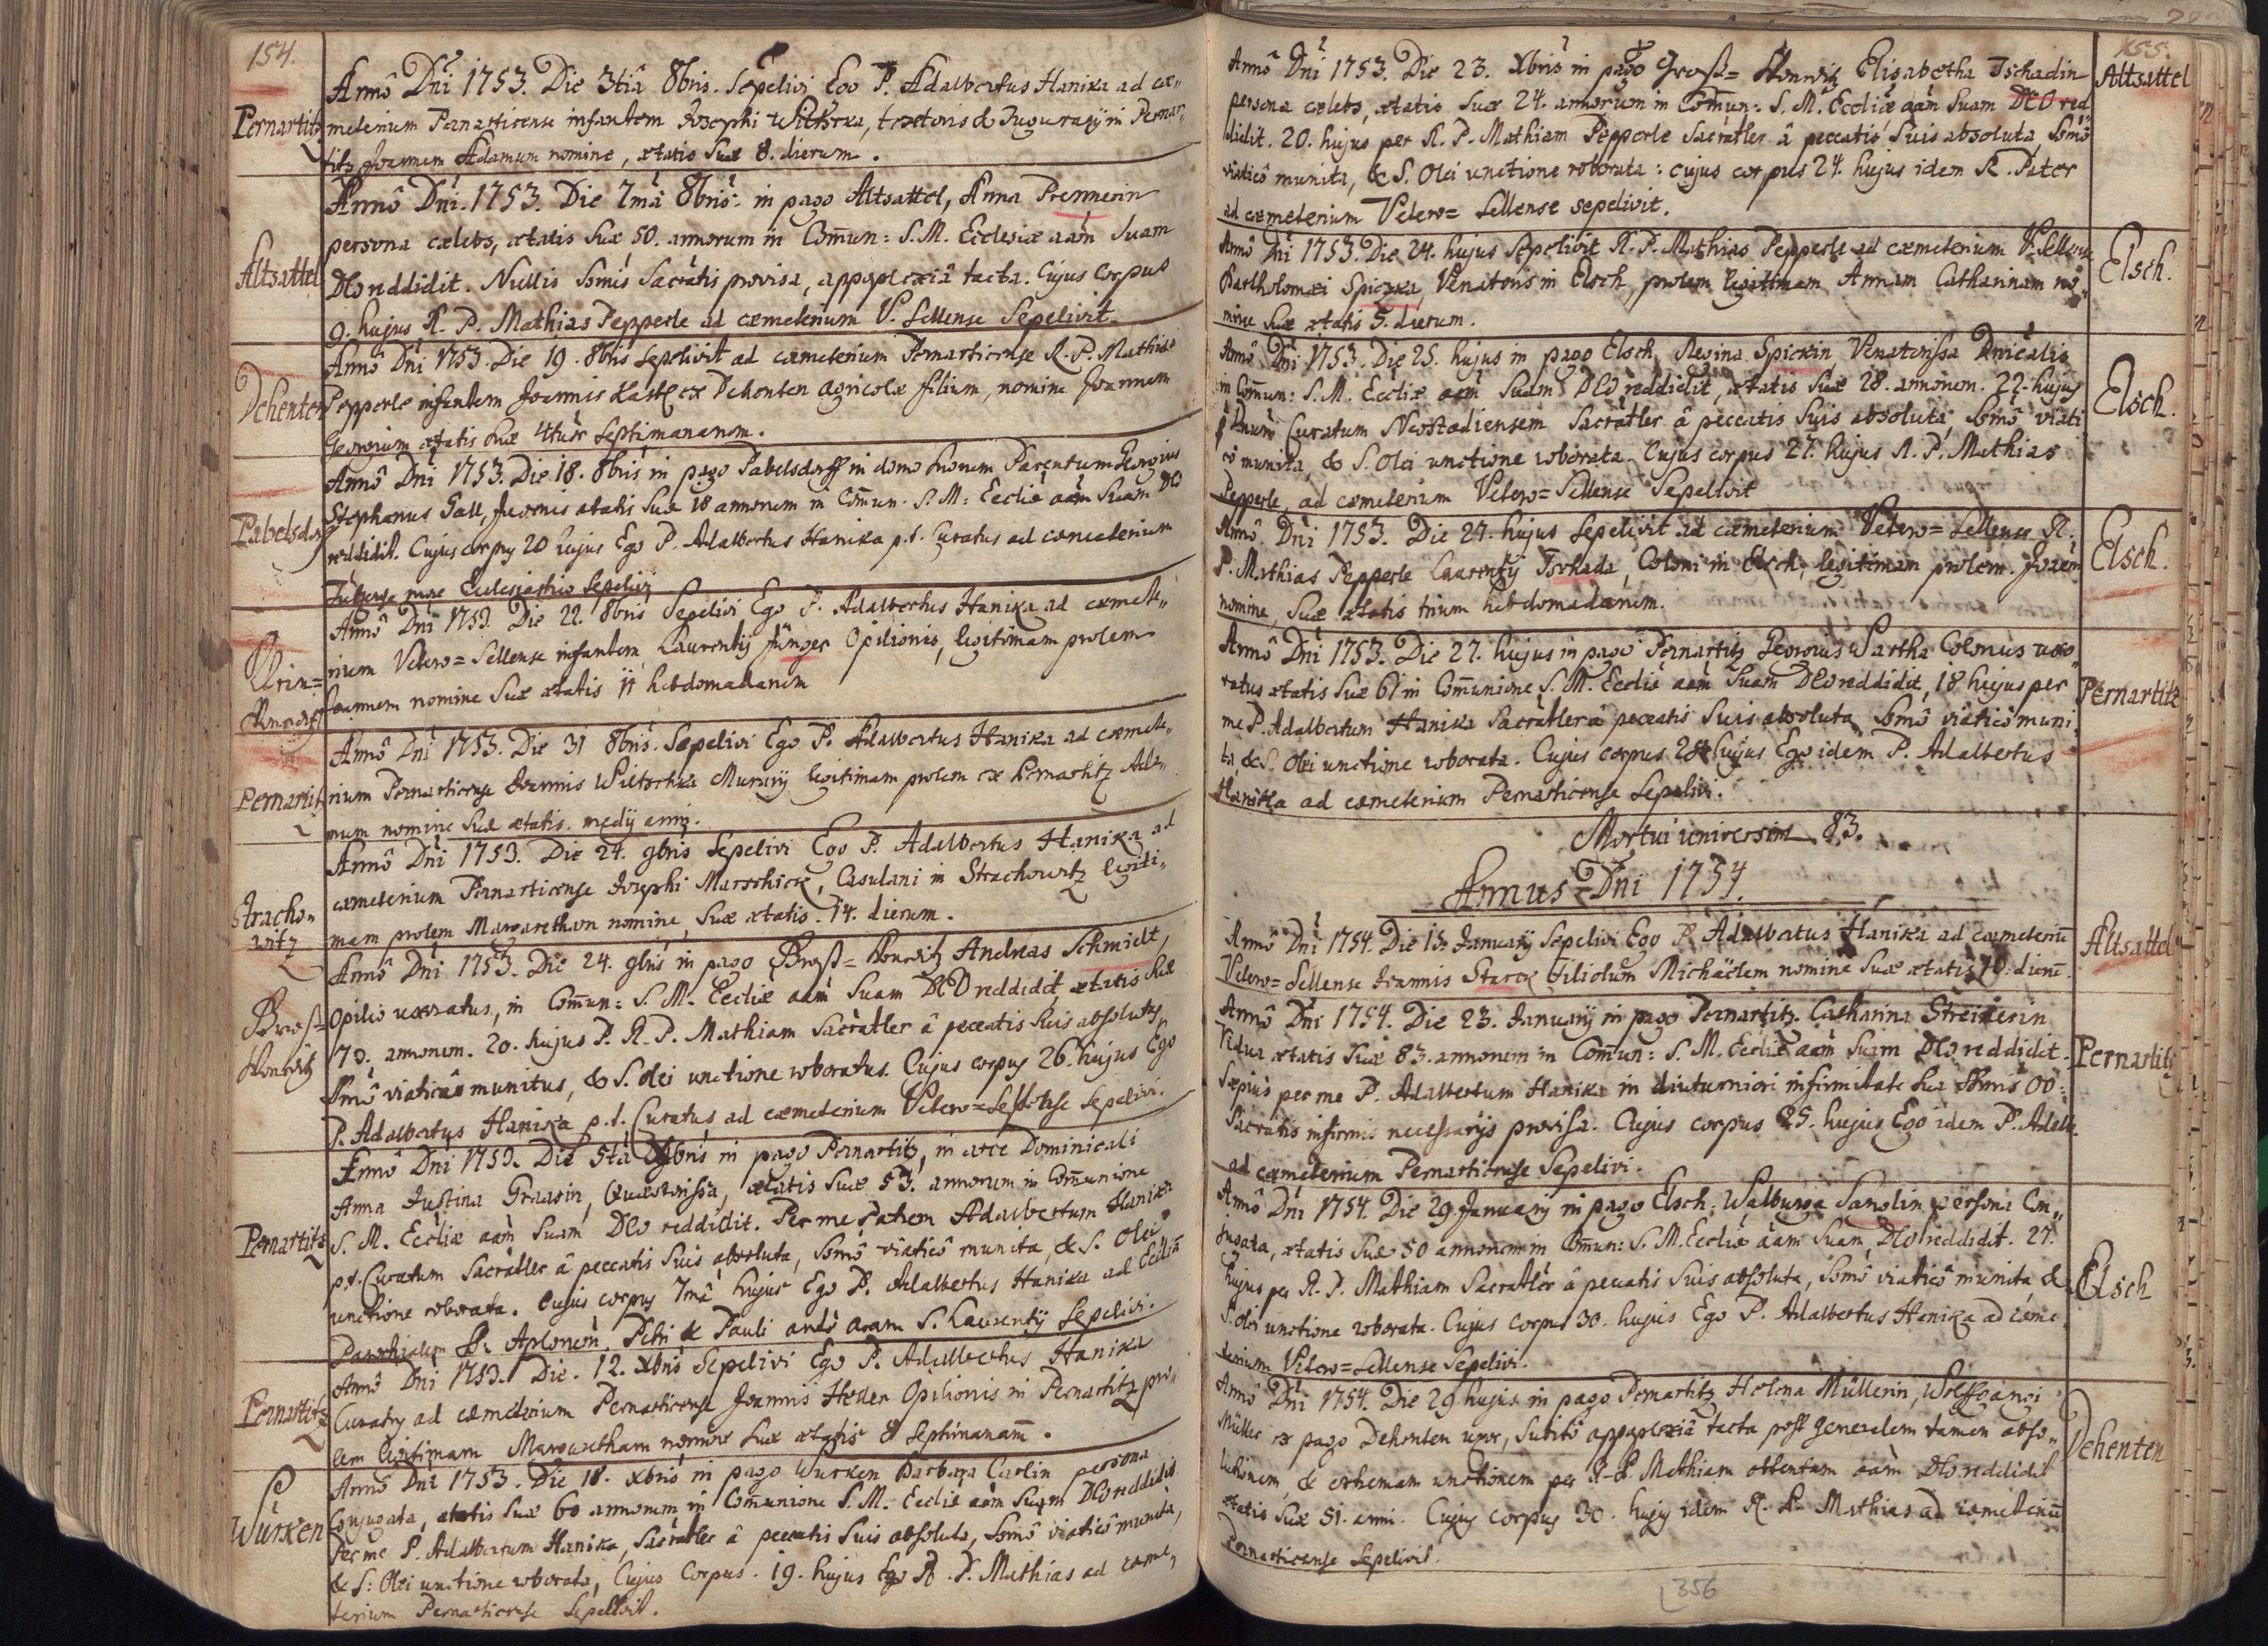 154.
Pernartitz
Anno Dni 1753. Die 3tia 8bris. Sepelivi Ego P. Adalbertus Hanika ad cæ„
meterium Pernarticense infantem Josephi Wiltscka, textoris & in Pernar„
titz Joannem Adamum nomine, ætatis suæ 8. dierum.
Altsattel
Anno Dni. 1753. Die 7ma 8bris. in pago Altsattel, Anna Premerin
persona cælebs, ætatis suæ 50. annorum in Com̄un: S. M. Ecclesiæ aam suam
DEO reddidit. Nullis S̄mis Sacratis provisa, appoplexiâ tacta. Cujus Corpus
9. hujus R. P. Mathias Pepperle ad cæmeterium V. Sellense Sepelivit.
Dehenten
Anno Dni 1753. Die 19. 8bris sepelivit ad cæmeterium Pernarticense R. P. Mathias
Pepperle infantem Joannis Kastl ex Dehenten agricolæ filium, nomine Joannem
Georgium ætatis suæ 4tuor septimanarum.
Pabelsdorf
Anno Dni 1753. Die 18. 8bris in pago Pabelsdorff in domo suorum Parentum Georgius
Stephanus Gall, Juvenis ætatis suæ 18 annorum in Com̄un. S. M. Eccliæ aam suam DEO
reddidit. Cujus corpus 20 hujus Ego P. Adalbertus Hanika p. t. Curatus ad cæmeterium
more Ecclesiastico sepelivi
Anno Dni 1753. Die 22. 8bris Sepelivi Ego P. Adalbertus Hanika ad cæmete„
rium Vetero=Sellense infantem Laurentij Jünger Opilionis, legitimam prolem
Joannem nomine suæ ætatis 11 hebdomadarum
Pernartitz
Anno Dni 1753. Die 31 8bris. Sepelivi Ego P. Adalbertus Hanika ad cæmete„
rium Pernarticense Joannis Wiltschka Murarij legitimam prolem ex Pernartitz Ada„
mum nomine suæ ætatis medij anni.
Stracho„
witz
Anno Dni 1753. Die 24. 9bris sepelivi Ego P. Adalbertus Hanika ad
cæmeterium Pernarticense Josephi Marschick, Casulani in Strachowitz legiti„
mam prolem Margaretham nomine, suæ ætatis 14. dierum.
Groß=
Honwitz
Anno Dni 1753. Die 24. 9bris in pago Groß=Honwitz Andreas Schmidt,
Opilio uxoratus, in Com̄un: S. M. Eccliæ aam suam DEO reddidit, ætatis suæ
70. annorum. 20. hujus P. R. P. Mathiam Sacratler â peccatis suis absolutus,
S̄mô viaticô munitus, & S. olei unctione roboratus. Cujus corpus 26. hujus Ego
P. Adalbertus Hanika p. t. Curatus ad cæmeterium Vetero=Sellense sepelivi.
Pernartitz
Anno Dni 1753. Die 5ta in pago Pernartitz, in arce Dominicali
Anna Justina Graasin, Quæstorissa, ætatis suæ 53. annorum in Com̄unione
S. M. Eccliæ aam suam DEO reddidit. Per me Patrem Adalbertum Hanika
p. t. Curatum Sacratler â peccatis suis absoluta, S̄mô viaticô munita, & S. Olei
unctione roborata. Cujus corpus 7mâ hujus Ego P. Adalbertus Hanika ad Eccliam
Parochialem SS. Aplorum Petri & Pauli ante aram S. Laurentij sepelivi.
Pernartitz
Anno Dni 1753. Die 12. Xbris Sepelivi Ego P. Adalbertus Hanika
Curatus ad cæmeterium Pernarticense Joannis Heller Opilionis in Pernartitz pro„
lem legitimam Margaretham nomine suæ ætatis 8 septimanarum.
Wurken
Anno Dni 1753. Die 18. Xbris in pago Wurken Barbara Carlin persona
Conjugata, ætatis suæ 60 annorum in Com̄unione S. M. Eccliæ aam suam DEO reddidit
Per me P. Adalbertum Hanika, Sacratler â peccatis suis absoluta, S̄mô viaticô munita,
& S: Olei unctione roborata, Cujus Corpus 19. hujus Ego R. P. Mathias ad cæme„
terium Pernarticense Sepelivit.
155.
Altsattel
Anno Dni 1753. Die 23. Xbris in pago Groß=Honwitz Elisabetha Tschadin
persona cælebs, ætatis suæ 24. annorum in Com̄un: S. M. Eccliæ aam suam DEO red„
didit. 20. hujus per R. P. Mathiam Pepperle Sacratler â peccatis suis absoluta, S̄mô
viaticô munita, & S. Olei unctione roborata: cujus corpus 24. hujus idem R. Pater
ad cæmeterium Vetero=Sellense sepelivit.
Elsch.
Anno Dni 1753. Die 24. hujus sepelivit R. P. Mathias Pepperle ad cæmeterium V. Sellense
Bartholomæi Spiczka, Venatoris in Elsch, prolem legitimam Annam Catharinam no„
mine suæ ætatis 5. dierum.
Elsch.
Anno Dni 1753. Die 25. hujus in pago Elsch, Regina Spickin Venatorissa Dnicalis
in Com̄un: S. M. Eccliæ aam suam DEO reddidit, ætatis suæ 28. annorum. 22. hujus
p Dnum Curatum Neostadiensem Sacratler â peccatis suis absoluta, S̄mô viati
cô munita, & S. Olei unctione roborata. Cujus corpus 27. hujus R. P. Mathias
Pepperle, ad cæmeterium Vetero=Sellense Sepelivit
Elsch.
Anno Dni 1753. Die 27. hujus sepelivit ad cæmeterium Vetero=Sellense R.
P. Mathias Pepperle Laurentij Tschada, Coloni in Elsch, legitimam prolem. Joañem
nomine, suæ ætatis trium hebdomadarum.
Pernartitz
Anno Dni 1753. Die 27. hujus in pago Pernartitz Georgius Wartha Colonus uxo„
ratus ætatis suæ 61 in Com̄unione S. M. Eccliæ aam suam DEO reddidit, 18 hujus per
me P. Adalbertum Hanika Sacratler â peccatis suis absoluta S̄mô viaticô muni„
ta, & S. Olei unctione roborata. Cujus corpus 28 hujus Ego idem P. Adalbertus
Hanika ad cæmeterium Pernarticense Sepelivi.
Mortui universim 83.
Annus Dni 1754.
Altsattel
Anno Dni 1754. Die 15. Januarij Sepelivi Ego P. Adalbertus Hanika ad cæmeteriū
Vetero=Sellense Joannis Starck filiolum Michäelem nomine suæ ætatis 10. dierū.
Pernartitz
Anno Dni 1754. Die 23. Januarij in pago Pernartitz Catharina Streicerin
Vidua ætatis suæ 83. annorum in Com̄un: S. M. Eccliæ aam suam DEO reddidit.
Sæpius per me P. Adalbertum Hanika in diuturniori infirmitate sua S̄mis OO:
Sacratis infirmis necessarijs provisa. Cujus corpus 25. hujus Ego idem P. Adalb.
ad cæmeterium Pernarticense Sepelivi.
Elsch
Anno Dni 1754. Die 29 Januarij in pago Elsch, Walburga Samolin persona Con„
jugata, ætatis suæ 50 annorum in Com̄un: S. M. Eccliæ aam suam DEO reddidit. 27.
hujus per R. P. Mathiam Sacratler â peccatis suis absoluta, S̄mô viaticô munita &
S. Olei unctione roborata. Cujus corpus 30. hujus Ego P. Adalbertus Hanika ad cæme„
terium Vetero=Sellense Sepelivi.
Dehenten
Anno Dni 1754. Die 29 hujus in pago Pernartitz Helena Müllerin, Wolffgangi
Müller ex pago Dehenten uxor, subitô appoplexiâ tacta post generalem tamen abso„
lutionem, & extremam unctionem per R. P. Mathiam obtentam aam DEO reddidit
ætatis suæ 51. anni. Cujus corpus 30. hujus idem R. P. Mathias ad cæmeteriū
Pernarticense Sepelivit.
356